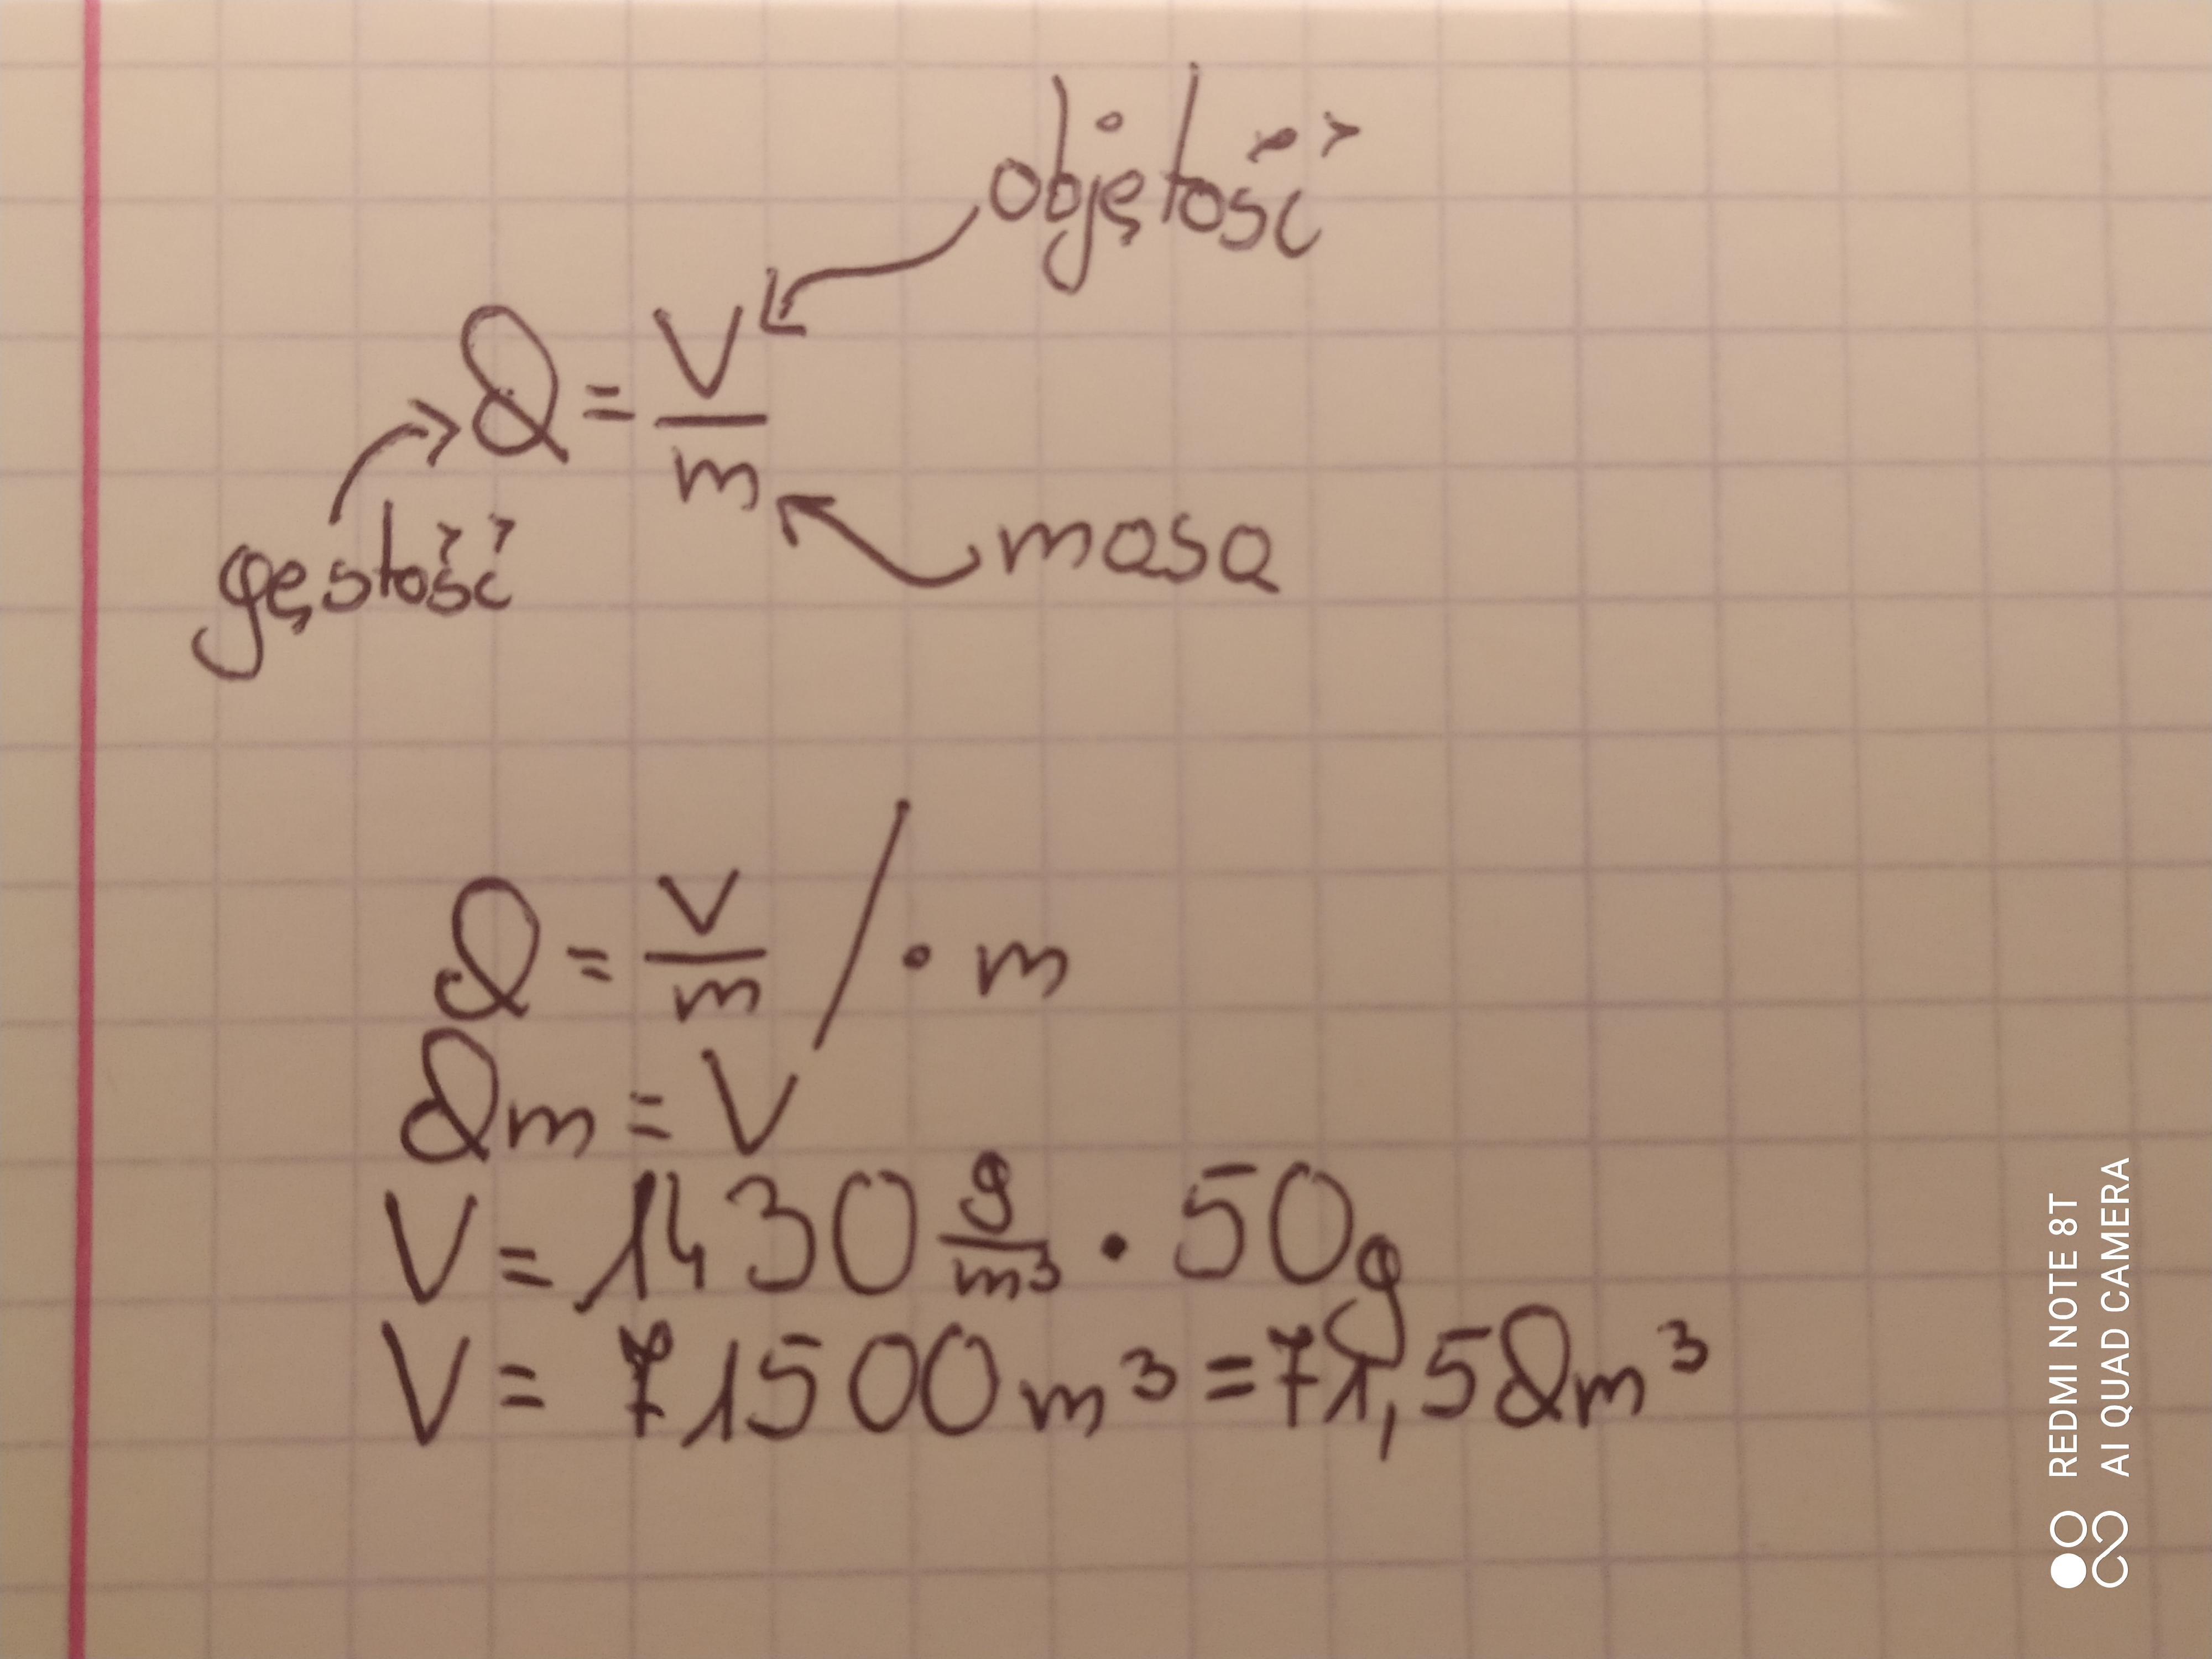 objętość
d = V/m
gęstość
masa
d = V/m / · m
dm = V
V = 1430 g/m³ · 50g
V = 71500 m³ = 71,5 dm³
REDMI NOTE 8T
AI QUAD CAMERA